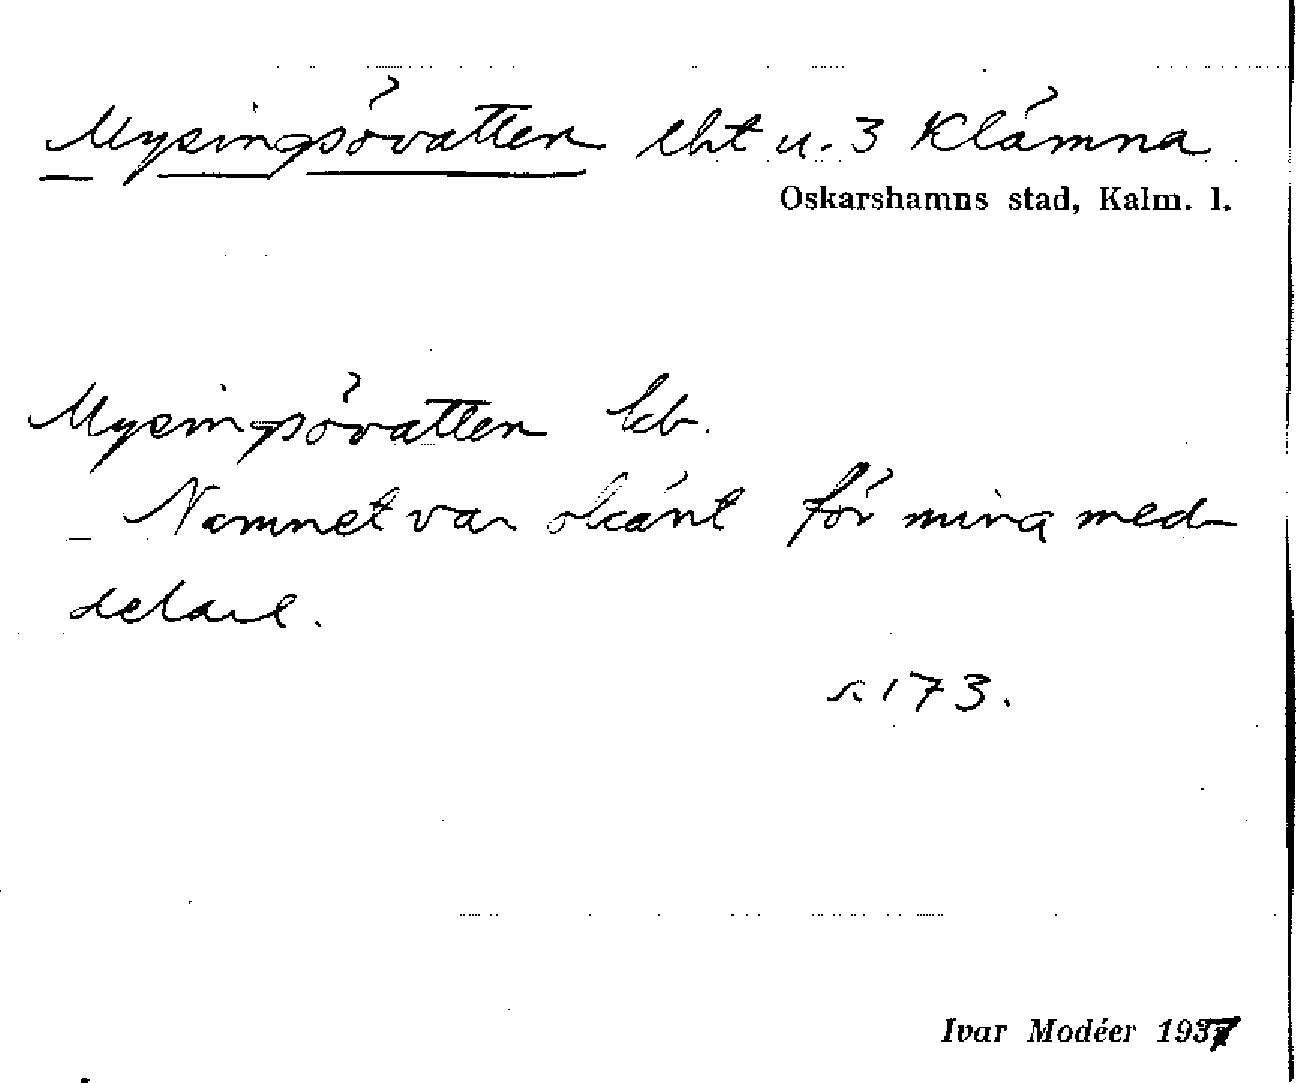 Mysingsövatten lht u. 3 Klämna
Oskarshamns stad, Kalm. l.
Mysingsövatten Ekb.
Namnet var okänt för mina med-
delare.
s. 173.
Ivar Modéer 1937